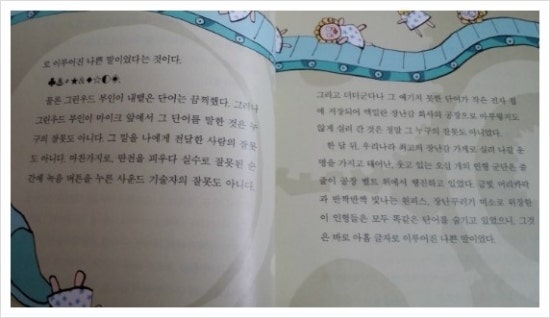 로 이루어진 나쁜 말이었다는 것이다.
물론 그린우드 부인이 내뱉은 단어는 끔찍했다. 그러나
그린우드 부인이 마이크 앞에서 그 단어를 말한 것은 누
구의 잘못도 아니다. 그 말을 나에게 전달한 사람의 잘못
도 아니다. 마찬가지로, 딴전을 피우다 실수로 잘못된 순
간에 녹음 버튼을 누른 사운드 기술자의 잘못도 아니다.
그리고 더더군다나 그 예기치 못한 단어가 작은 전자 칩
에 저장되어 백일란 장난감 회사의 공장으로 아무렇지도
않게 실려 간 것은 정말 그 누구의 잘못도 아니었다.
한 달 뒤, 우리나라 최고의 장난감 가게로 실려 나갈 운
명을 가지고 태어난, 웃고 있는 오십 개의 인형 군단은 줄
줄이 공장 벨트 위에서 행진하고 있었다. 금빛 머리카락
과 반짝반짝 빛나는 원피스, 장난꾸러기 미소로 위장한
이 인형들은 모두 똑같은 단어를 숨기고 있었으니, 그것
은 바로 아홉 글자로 이루어진 나쁜 말이었다.